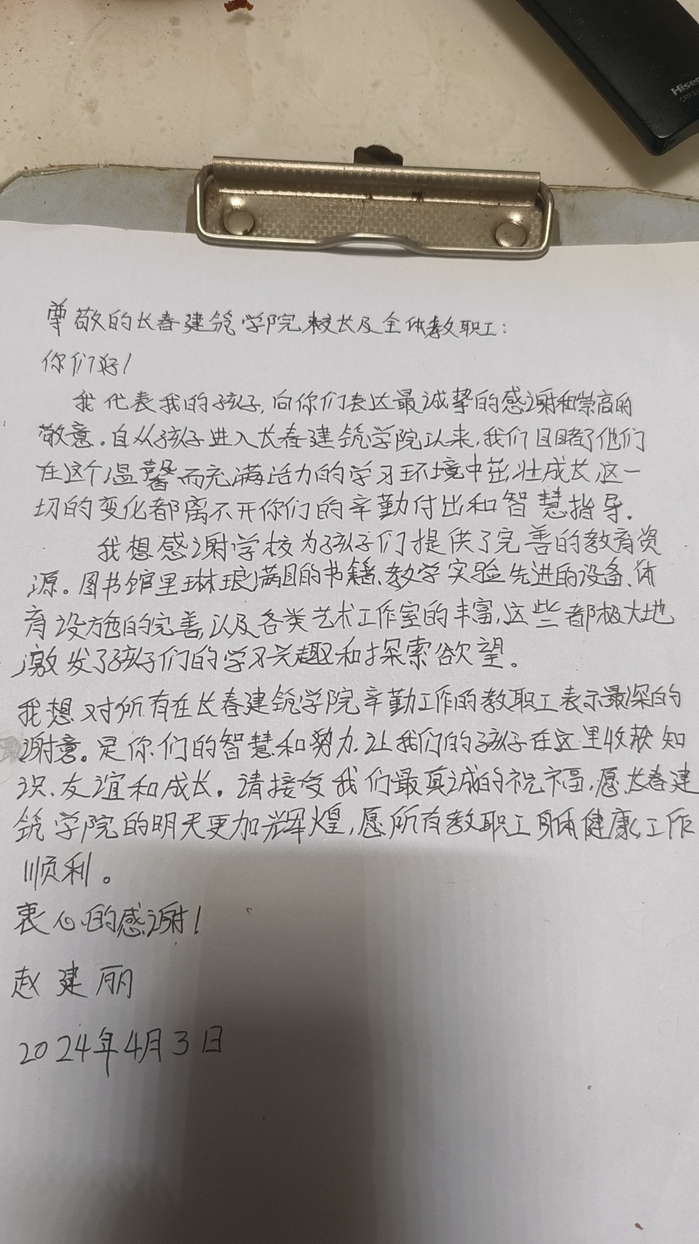 Hisen
尊敬的长春建筑学院校长及全体教职工:
你们好!
我代表我的孩子,向你们表达最诚挚的感谢和崇高的
敬意。自从孩子进入长春建筑学院以来,我们目睹了他们
在这个温馨而充满活力的学习环境中茁壮成长,这一
切的变化都离不开你们的辛勤付出和智慧指导.
我想感谢学校为孩子们提供了完善的教育资
源。图书馆里琳琅满目的书籍、教学实验先进的设备、体
育设施的完善,以及各类艺术工作室的丰富,这些都极大地
激发了孩子们的学习兴趣和探索欲望。
我想对所有在长春建筑学院辛勤工作的教职工表示最深的
谢意。是你们的智慧和努力,让我们的孩子在这里收获知
识、友谊和成长。请接受我们最真诚的祝福,愿长春建
筑学院的明天更加辉煌,愿所有教职工身体健康,工作
顺利。
衷心的感谢!
赵建丽
2024年4月3日